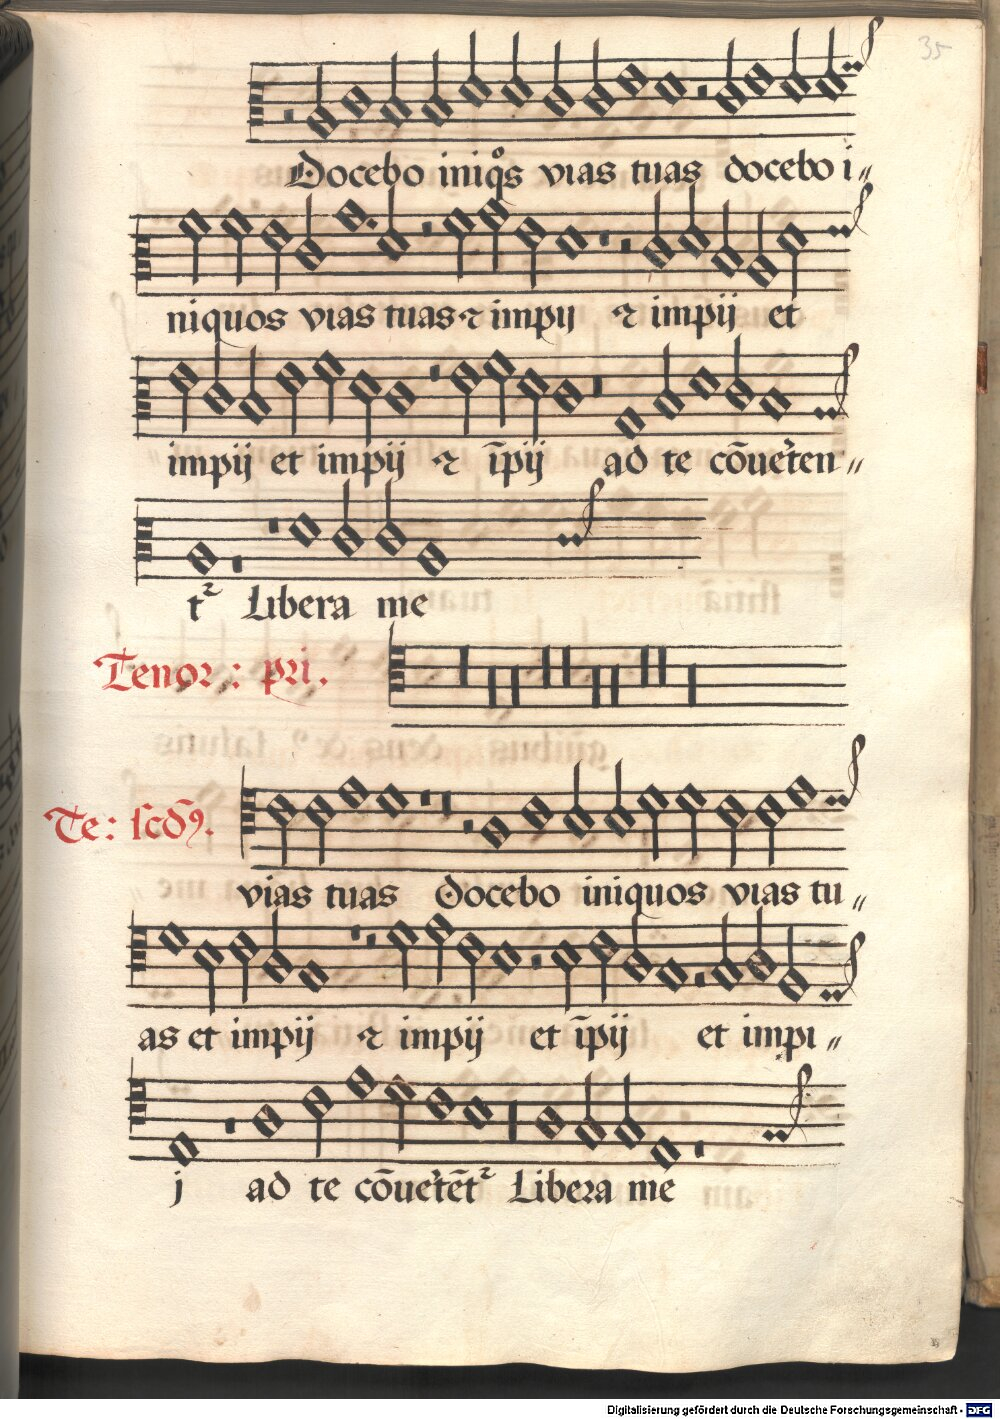 35
Docebo iniqͦs vias tuas docebo i〃
niquos vias tuas ⁊ impij ⁊ impij et
impij et impij ⁊ īpij ad te cōuertēn〃
t᷑ Libera me
Tenor: pri.
Te: scd̄ꝰ.
vias tuas Docebo iniquos vias tu〃
as et impij ⁊ impij et īpij et impi〃
j ad te cōuertēt᷑ Libera me
Digitalisierung gefördert durch die Deutsche Forschungsgemeinschaft - DFG